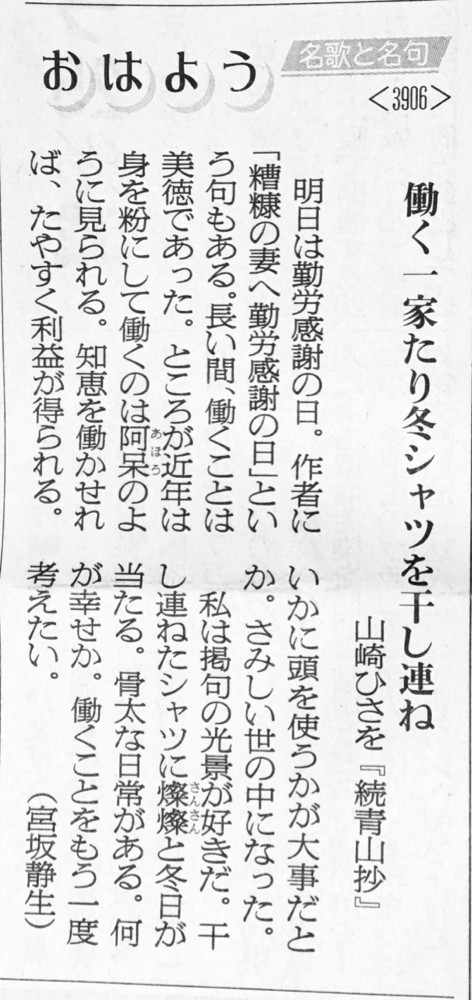 おはよう
名歌と名句
<3906>
働く一家たり冬シャツを干し連ね
山崎ひさを『続青山抄』
明日は勤労感謝の日。作者に
「糟糠の妻へ勤労感謝の日」とい
う句もある。長い間、働くことは
美徳であった。ところが近年は
身を粉にして働くのは阿呆のよ
あほう
うに見られる。知恵を働かせれ
ば、たやすく利益が得られる。
いかに頭を使うかが大事だと
か。さみしい世の中になった。
私は掲句の光景が好きだ。干
し連ねたシャツに燦燦と冬日が
さんさん
当たる。骨太な日常がある。何
が幸せか。働くことをもう一度
考えたい。
（宮坂静生）